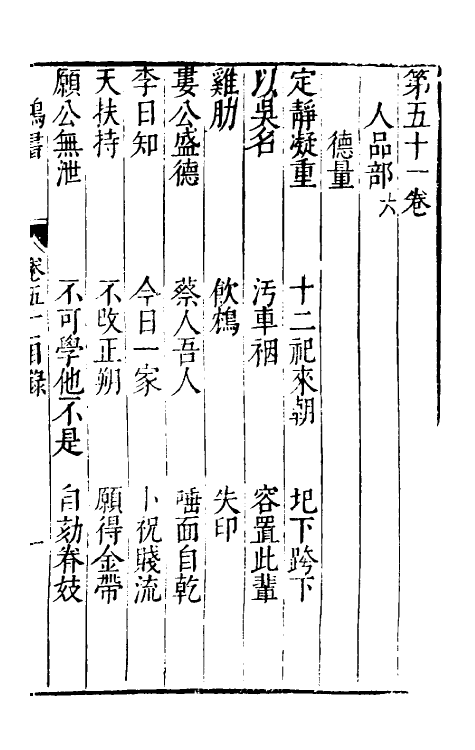 第五十一卷
人品部六
德量
定靜凝重 十二祀來朝 圯下跨下
以吳名 汚車裀 容置此輩
雞肋 飲鴆 失印
婁公盛德 蔡人吾人 唾面自乾
李日知 今日一家 卜祝賤流
天扶持 不改正朔 願得金帶
願公無泄 不可學他不是 自劾眷妓
鴻書 卷五十一目錄 一